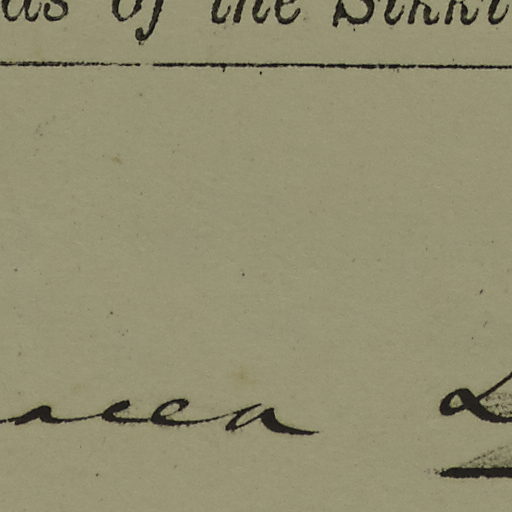 of the Sikki
acea